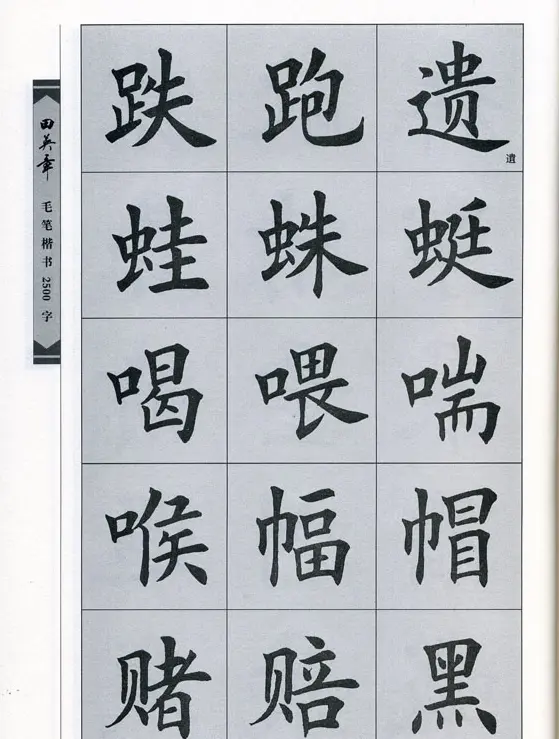 田英章
毛笔楷书2500字
遗 跑 跌
遺
蜓 蛛 蛙
喘 喂 喝
帽 幅 喉
黑 赔 赌